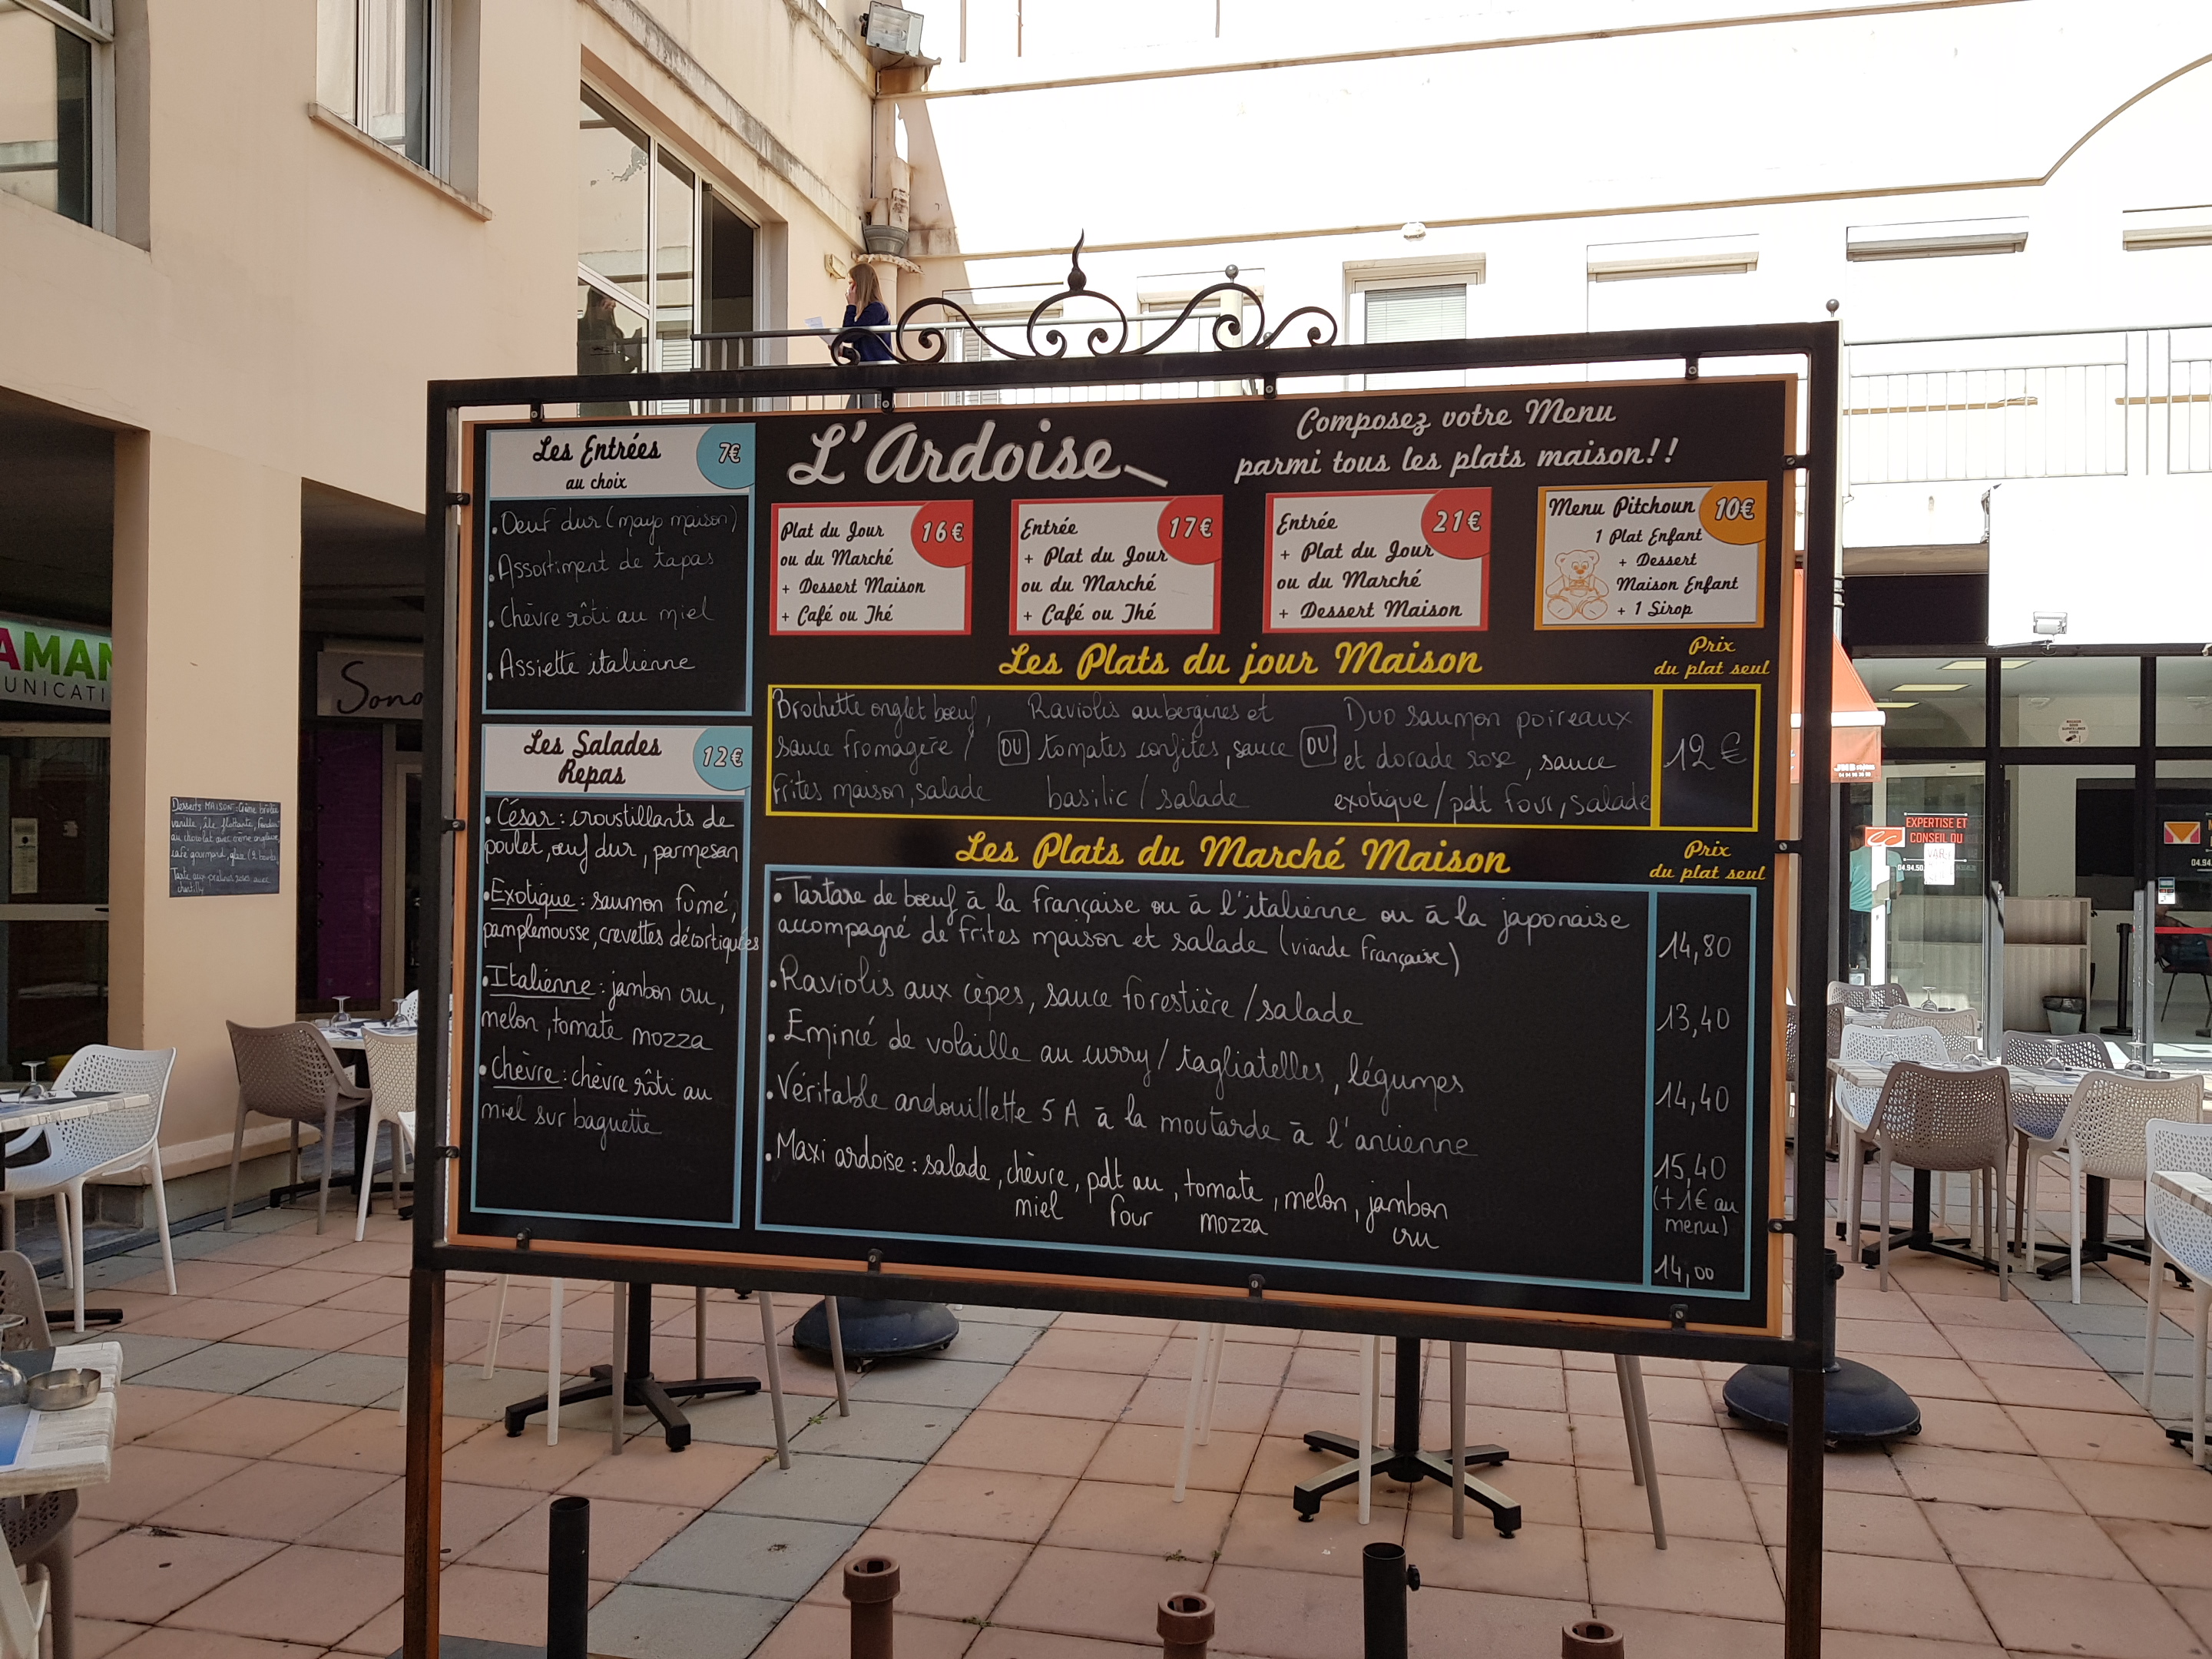 L'Ardoise
Composez votre Menu
parmi tous les plats maison!!
Les Entrées
au choix
7€
. Oeuf dur (mayo maison)
. Assortiment de tapas
. Chèvre rôti au miel
. Assiette italienne
Les Salades
Repas
12€
. César : croustillants de
poulet, œuf dur, parmesan
. Exotique : saumon fumé,
pamplemousse, crevettes décortiquées
. Italienne : jambon cru,
melon, tomate mozza
. Chèvre : chèvre rôti au
miel sur baguette
Plat du Jour
ou du Marché
+ Dessert Maison
+ Café ou Thé
16€
Entrée
+ Plat du Jour
ou du Marché
+ Café ou Thé
17€
Entrée
+ Plat du Jour
ou du Marché
+ Dessert Maison
21€
Menu Pitchoun
1 Plat Enfant
+ Dessert
Maison Enfant
+ 1 Sirop
10€
Les Plats du jour Maison
Prix
du plat seul
Brochette onglet bœuf,
sauce fromagère /
frites maison, salade
OU
Raviolis aubergines et
tomates confites, sauce
basilic / salade
OU
Duo saumon poireaux
et dorade rose, sauce
exotique / pdt four, salade
12 €
Les Plats du Marché Maison
Prix
du plat seul
. Tartare de bœuf à la française ou à l'italienne ou à la japonaise
accompagné de frites maison et salade (viande française)
14,80
. Raviolis aux cèpes, sauce forestière / salade
13,40
. Emincé de volaille au curry / tagliatelles, légumes
14,40
. Véritable andouillette 5 A à la moutarde à l'ancienne
15,40
(+ 1€ au
menu)
. Maxi ardoise : salade, chèvre, pdt au, tomate, melon, jambon
miel four mozza cru
14,00
AMAN
UNICATI
Sono
Desserts MAISON : Crème brûlée
vanille, île flottante, Fondant
au chocolat avec crème anglaise
café gourmand, glace (2 boules
Tarte aux pralines roses avec
chantilly
EXPERTISE ET
CONSEIL DU
VAR
04.94.50
04.94